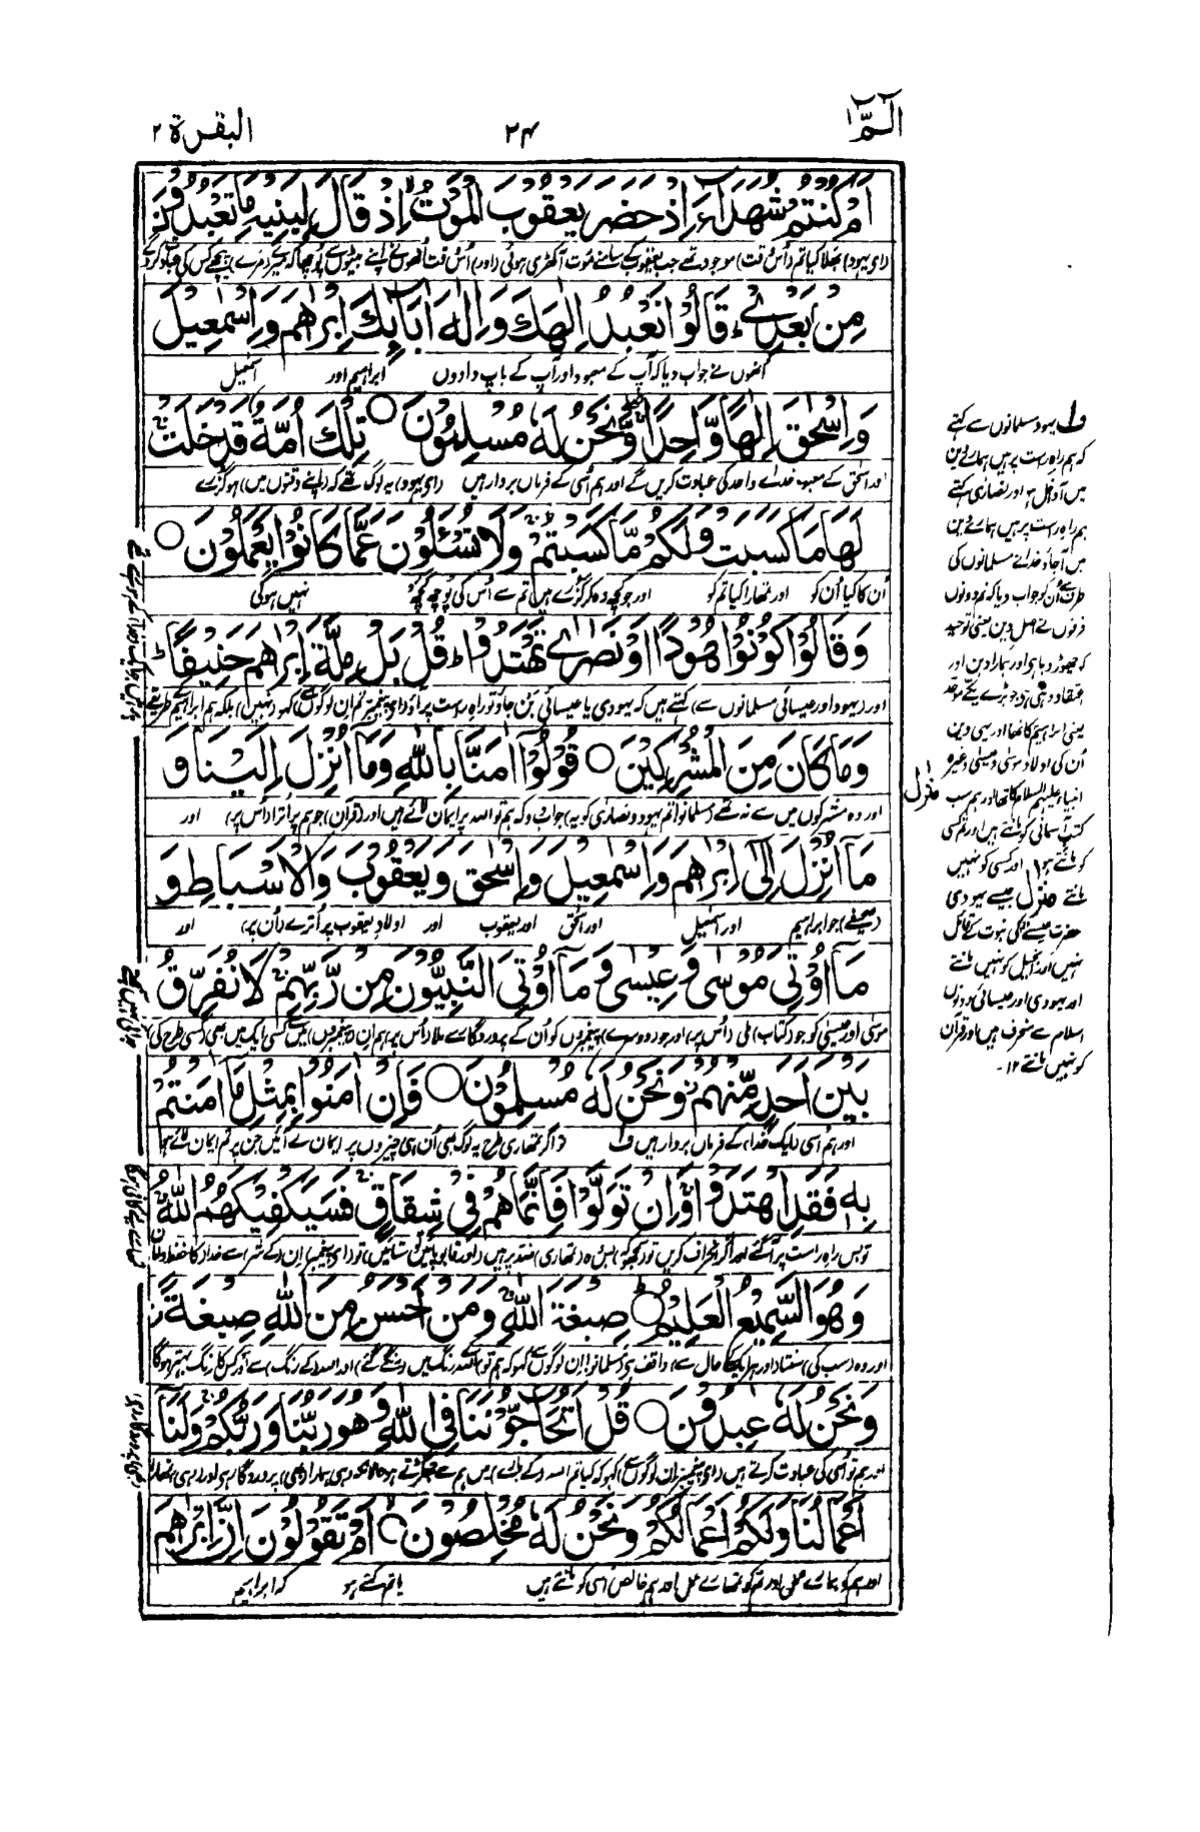 الٓمّٓ ١
٢٤
البقرة ٢
اَمْ كُنْتُمْ شُهَدَآءَ اِذْ حَضَرَ يَعْقُوْبَ الْمَوْتُ اِذْ قَالَ لِبَنِيْهِ مَا تَعْبُدُوْنَ
(اے یہود) بھلا کیا تم (اُس وقت) موجود تھے جب یعقوب کے سامنے موت آکھڑی ہوئی (اور) اُس وقت اُنھوں نے اپنے بیٹوں سے پوچھا کہ میرے (مرے) پیچھے کس کی عبادت کروگے
مِنْۢ بَعْدِيْ ؕ قَالُوْا نَعْبُدُ اِلٰهَكَ وَ اِلٰهَ اٰبَآئِكَ اِبْرٰهٖمَ وَ اِسْمٰعِيْلَ
اُنھوں نے جواب دیا کہ آپ کے معبود اور آپ کے باپ دادوں ابراہیم اور اسمٰعیل
وَ اِسْحٰقَ اِلٰهًا وَّاحِدًا ۖ وَّ نَحْنُ لَهٗ مُسْلِمُوْنَ ○ تِلْكَ اُمَّةٌ قَدْ خَلَتْ
اور اسحٰق کے معبود خدائے واحد کی عبادت کریں گے اور ہم اُسی کے فرماں بردار ہیں (اے یہود) یہ لوگ تھے کہ (اپنے وقتوں میں) ہو گزرے
لَهَا مَا كَسَبَتْ وَ لَكُمْ مَّا كَسَبْتُمْ ۚ وَ لَا تُسْـَٔلُوْنَ عَمَّا كَانُوْا يَعْمَلُوْنَ ○
اُن کا کیا اُن کو اور تمھارا کیا تم کو اور جو کچھ وہ کر گزرے ہیں تم سے اُس کی پوچھ گچھ نہیں ہوگی
وَ قَالُوْا كُوْنُوْا هُوْدًا اَوْ نَصٰرٰى تَهْتَدُوْا ؕ قُلْ بَلْ مِلَّةَ اِبْرٰهٖمَ حَنِيْفًا ؕ
اور (یہود اور عیسائی مسلمانوں سے) کہتے ہیں کہ یہودی یا عیسائی بن جاؤ تو راہ راست پر آؤ (اے پیغمبر تم ان لوگوں سے) کہو (نہیں) بلکہ ہم ابراہیم کے طریقے
وَ مَا كَانَ مِنَ الْمُشْرِكِيْنَ ○ قُوْلُوْۤا اٰمَنَّا بِاللّٰهِ وَ مَاۤ اُنْزِلَ اِلَيْنَا وَ
اور وہ مشرکوں میں سے نہ تھے (مسلمانو! تم یہود و نصاریٰ کو یہ) جواب دو کہ ہم تو اللہ پر ایمان لائے ہیں اور (قرآن) جو ہم پر اُترا (اُس پر) اور
مَاۤ اُنْزِلَ اِلٰۤى اِبْرٰهٖمَ وَ اِسْمٰعِيْلَ وَ اِسْحٰقَ وَ يَعْقُوْبَ وَ الْاَسْبَاطِ وَ
(صحیفے) جو ابراہیم اور اسمٰعیل اور اسحٰق اور یعقوب اور اولادِ یعقوب پر اُترے (اُن پر) اور
مَاۤ اُوْتِيَ مُوْسٰى وَ عِيْسٰى وَ مَاۤ اُوْتِيَ النَّبِيُّوْنَ مِنْ رَّبِّهِمْ ۚ لَا نُفَرِّقُ
موسیٰ اور عیسیٰ کو جو (کتاب) ملی (اُس پر) اور جو (دوسرے) پیغمبروں کو اُن کے پروردگار سے ملا (اُس پر) ہم ان (پیغمبروں) میں سے کسی ایک میں بھی (کسی طرح کی)
بَيْنَ اَحَدٍ مِّنْهُمْ ۖ وَ نَحْنُ لَهٗ مُسْلِمُوْنَ ○ فَاِنْ اٰمَنُوْا بِمِثْلِ مَاۤ اٰمَنْتُمْ
اور ہم اُسی (ایک خدا) کے فرماں بردار ہیں ف١ تو اگر تمھاری طرح یہ لوگ بھی اُن ہی چیزوں پر ایمان لے آئیں جن پر تم ایمان لائے ہو
بِهٖ فَقَدِ اهْتَدَوْا ۚ وَ اِنْ تَوَلَّوْا فَاِنَّمَا هُمْ فِيْ شِقَاقٍ ۚ فَسَيَكْفِيْكَهُمُ اللّٰهُ ۚ
تو بس راہ راست پر آگئے اور اگر انحراف کریں تو (سمجھو کہ) بس وہ (تمھاری) ضد پر ہیں
وَ هُوَ السَّمِيْعُ الْعَلِيْمُ ○ صِبْغَةَ اللّٰهِ ۚ وَ مَنْ اَحْسَنُ مِنَ اللّٰهِ صِبْغَةً ز
اور وہ (سب کی) سنتا اور (ہر ایک کا حال) سے واقف ہے (مسلمانو! ان لوگوں سے کہو کہ ہم تو) اللہ کے رنگ میں (رنگے گئے) اور اللہ کے رنگ سے اور کس کا رنگ بہتر ہوگا
وَ نَحْنُ لَهٗ عٰبِدُوْنَ ○ قُلْ اَتُحَآجُّوْنَنَا فِي اللّٰهِ وَ هُوَ رَبُّنَا وَ رَبُّكُمْ ۚ وَ لَنَاۤ
اور ہم تو اُسی کی عبادت کرتے ہیں (اے پیغمبر ان لوگوں سے) کہو کہ کیا تم اللہ (کے بارے) میں ہم سے جھگڑتے ہو حالانکہ وہی ہمارا (بھی) پروردگار ہے اور (وہی) تمھارا
اَعْمَالُنَا وَ لَكُمْ اَعْمَالُكُمْ ۚ وَ نَحْنُ لَهٗ مُخْلِصُوْنَ ○ اَمْ تَقُوْلُوْنَ اِنَّ اِبْرٰهٖمَ
اور ہم کو ہمارے عمل اور تم کو تمھارے عمل اور ہم خالص اُسی کو مانتے ہیں یا تم کہتے ہو کہ ابراہیم
ف١ یہود مسلمانوں سے کہتے
کہ ہم راہ راست پر ہیں ہمارے دین
میں آ داخل ہو اور نصاریٰ کہتے
ہم راہ راست پر ہیں ہمارے دین
میں آجاؤ خدا نے مسلمانوں کی
طرف سے اُن کو جواب دیا کہ تم دونوں
فرقوں نے اصل دین یعنی توحید
کو چھوڑ دیا ہے اور ہمارا دین اور
اعتقاد وہی ہے جو بڑے پکے موحد
یعنی ابراہیم کا تھا اور یہی دین
اُن کی اولاد موسیٰ و عیسیٰ وغیرہ
انبیاء علیہم السلام کا تھا اور ہم سب
کتب آسمانی کو مانتے ہیں اور تم کسی
کو مانتے ہو اور کسی کو نہیں
مانتے جیسے یہودی
حضرت عیسیٰ کی نبوت کے قائل
نہیں اور انجیل کو نہیں مانتے
اور یہودی اور عیسائی دونوں
اسلام سے منحرف ہیں اور قرآن
کو نہیں مانتے ١٢۔
منزل